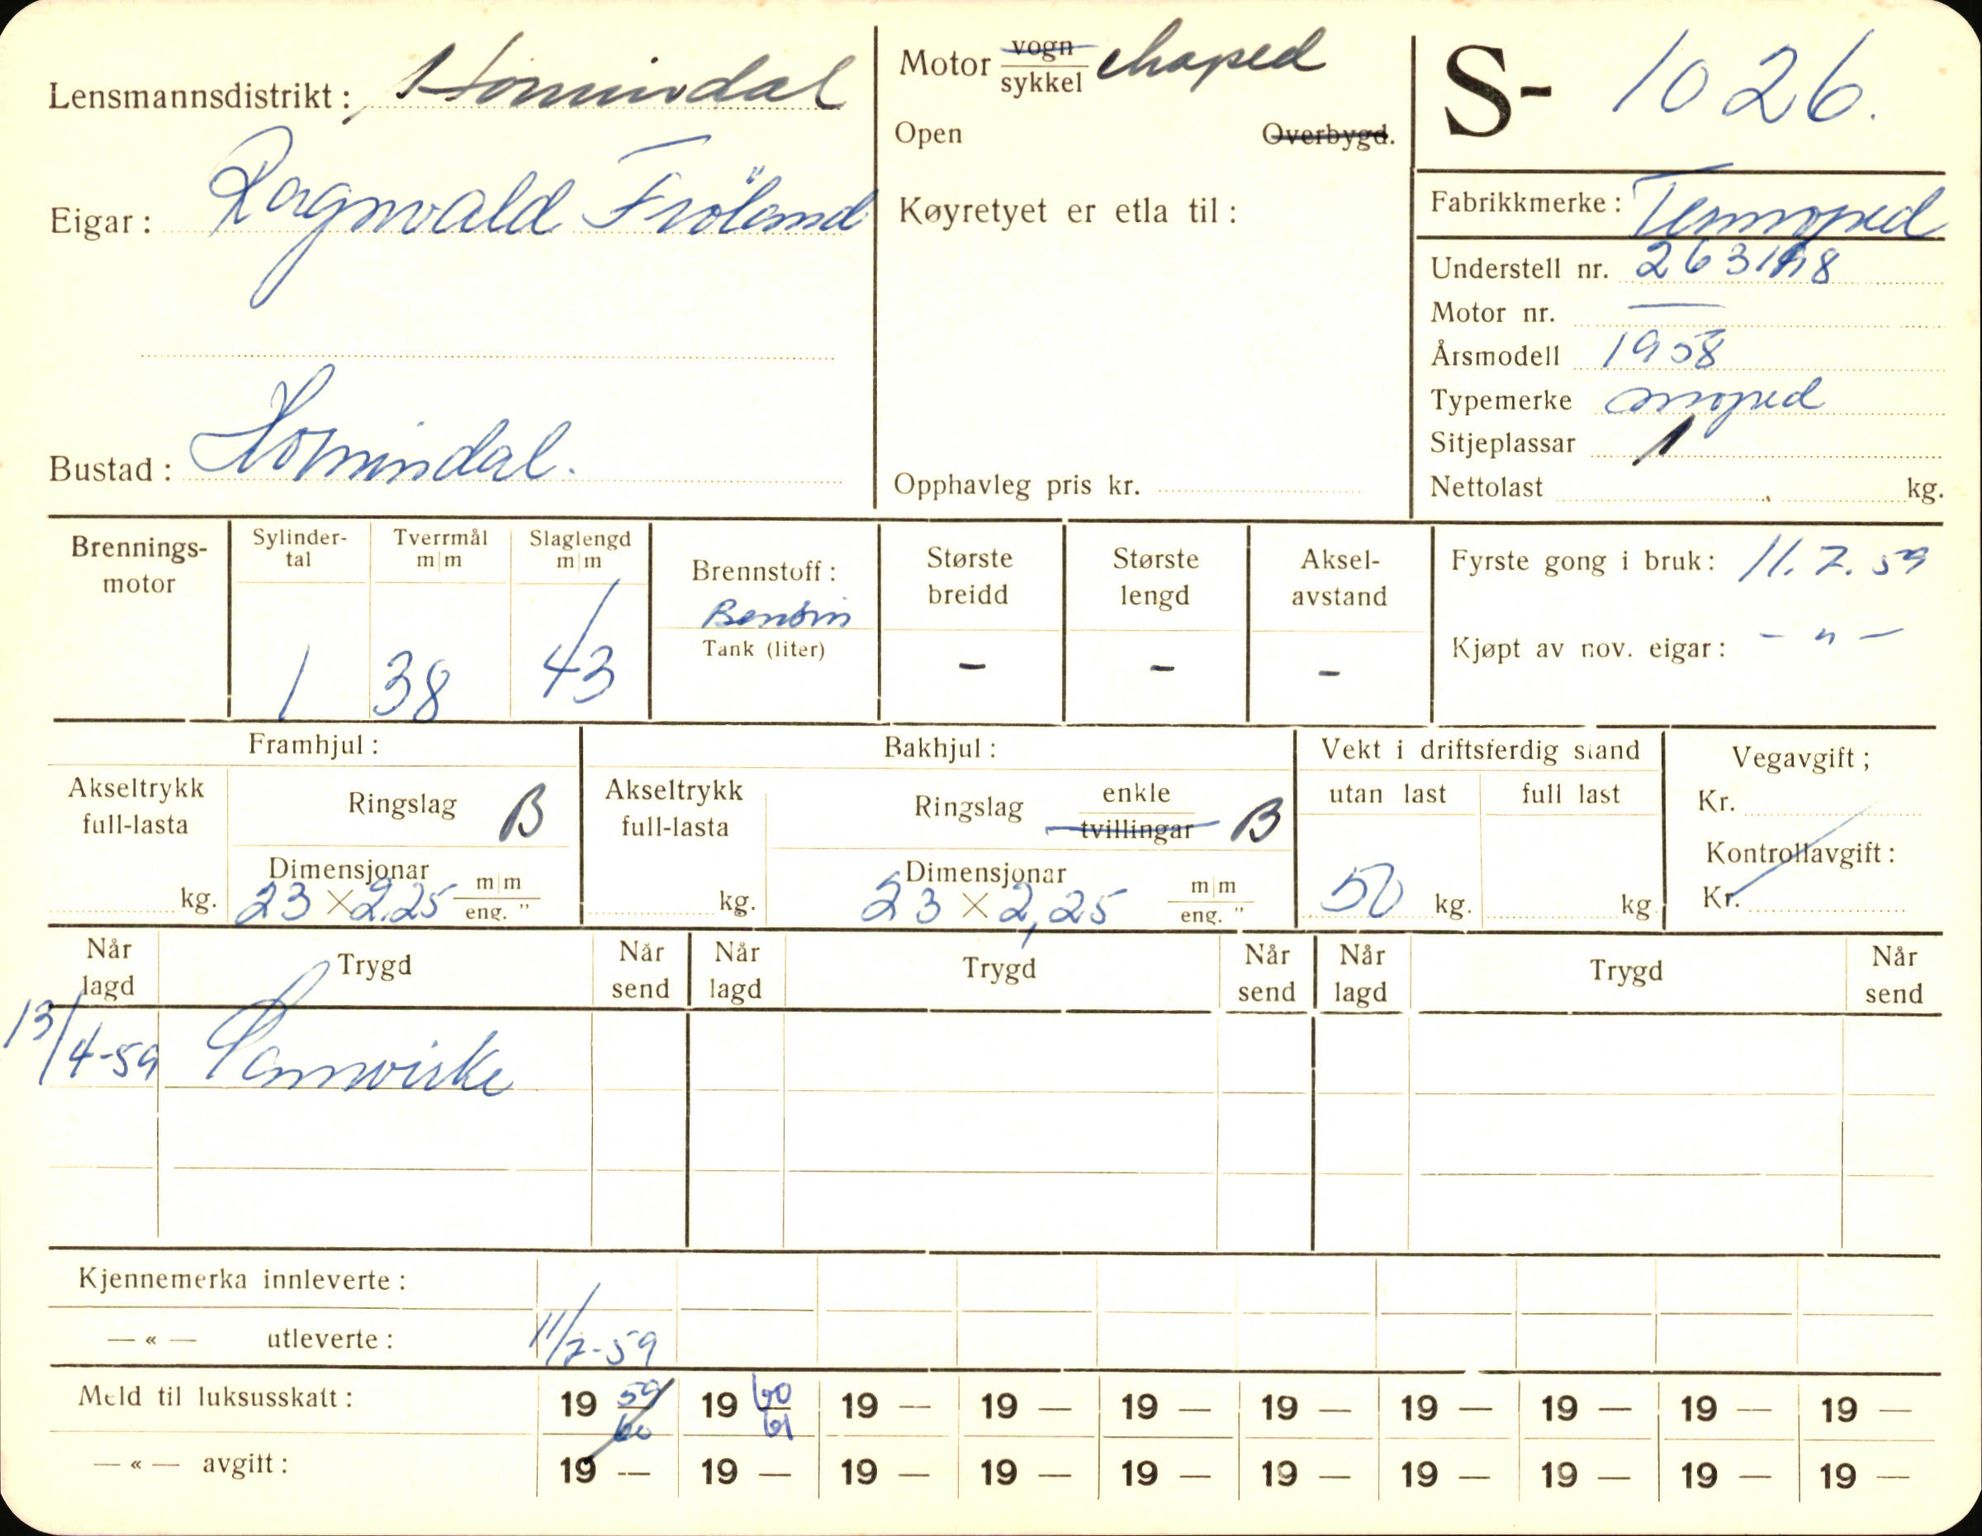 Lensmannsdistrikt: Hornindal
Eigar: Ragnvald Fröland
Bustad: Hornindal.
Motor vogn sykkel
Open Overbygd.
Køyretyet er etla til:
Opphavleg pris kr.
S- 1026.
Fabrikkmerke: Tempoped
Understell nr.
Motor nr. —
Årsmodell 1958
Typemerke moped
Sitjeplassar 1
Nettolast kg.
Brennings-
motor
Sylinder-
tal
1
Tverrmål
m|m
38
Slaglengd
m|m
43
Brennstoff:
Bensin
Tank (liter)
Største
breidd
-
Største
lengd
-
Aksel-
avstand
-
Fyrste gong i bruk: 11.7.59
Kjøpt av nov. eigar: - " -
Framhjul:
Akseltrykk
full-lasta
kg.
Ringslag B
Dimensjonar
23 × 2.25 m|m eng. "
Bakhjul:
Akseltrykk
full-lasta
kg.
Ringslag enkle tvillingar B
Dimensjonar
23 × 2,25 m|m eng. "
Vekt i driftsferdig stand
utan last full last
50 kg. kg
Vegavgift;
Kr.
Kontrollavgift:
Kr.
Når lagd Trygd Når send Når lagd Trygd Når send Når lagd Trygd Når send
13/4-59 Samvirke
Kjennemerka innleverte:
— « — utleverte: 11/7-59
Meld til luksusskatt: 19 59/60 19 60/61 19 — 19 — 19 — 19 — 19 — 19 — 19 — 19 —
— « — avgitt: 19 — 19 — 19 — 19 — 19 — 19 — 19 — 19 — 19 — 19 —